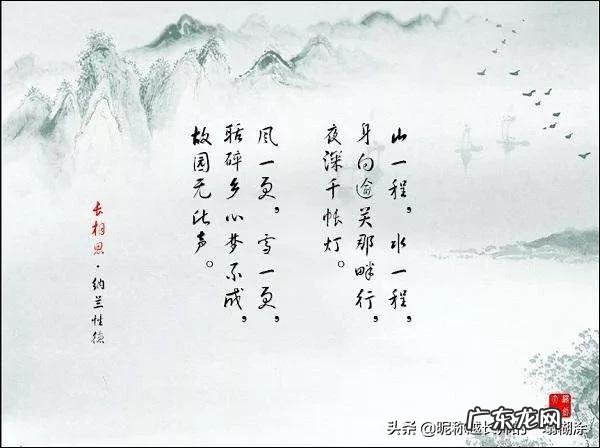 山一程，水一程，
身向逾关那畔行，
夜深千帐灯。
风一更，雪一更，
聒碎乡心梦不成，
故园无此声。
长相思·纳兰性德
头条 @昵称越长
糊涂
广东龙网